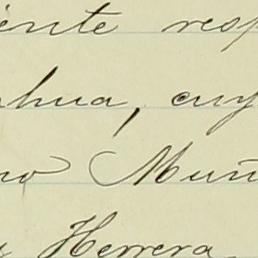 iente resp
ahua, cuy
no Muñ
Herrera